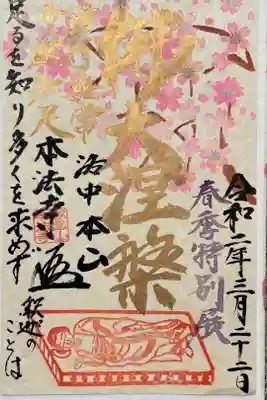 令和二年三月二十二日
春季特別展
拝大涅槃
洛中本山
本法寺
足るを知り多くを求めず
釈迦の
ことば